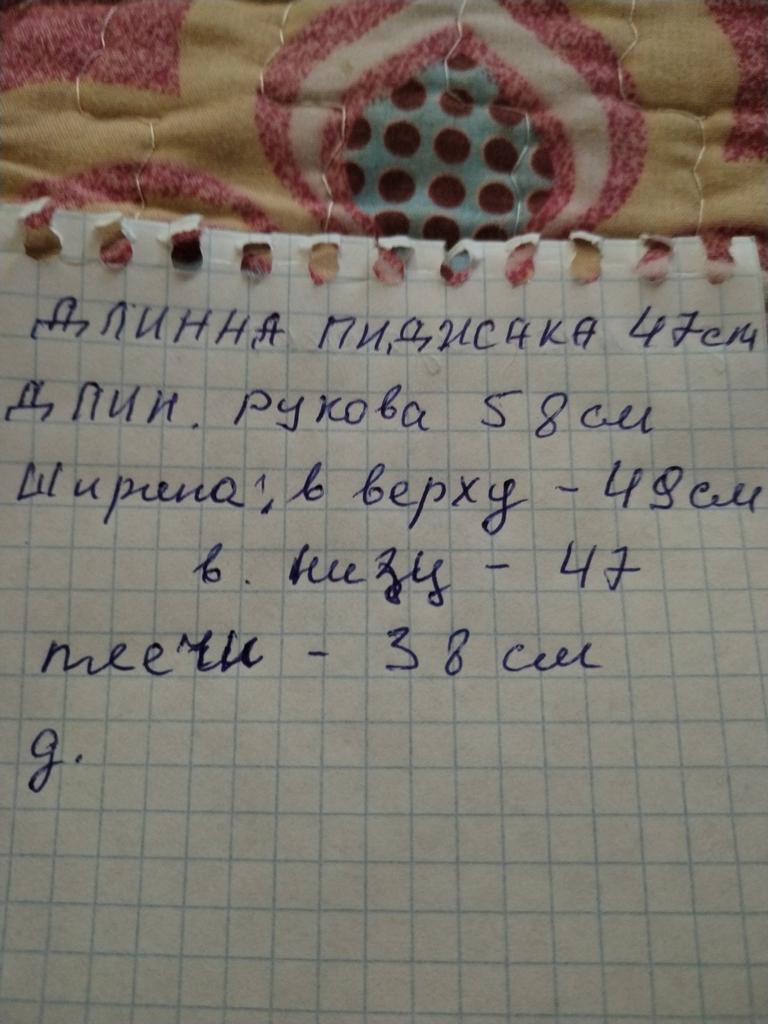 ДЛИННА ПИДЖАКА 47см
ДЛИН. рукова 58см
Ширина:, в верху - 49см
в. низу - 47
плечи - 38 см
д.